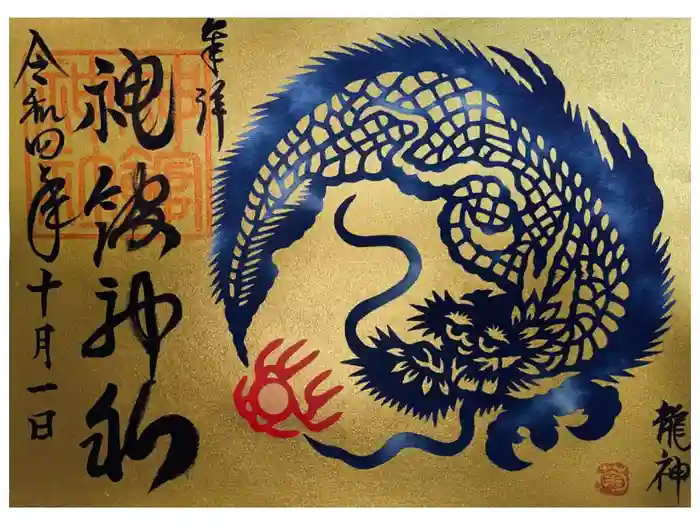 奉拝
神館神社
令和四年十月一日
龍神